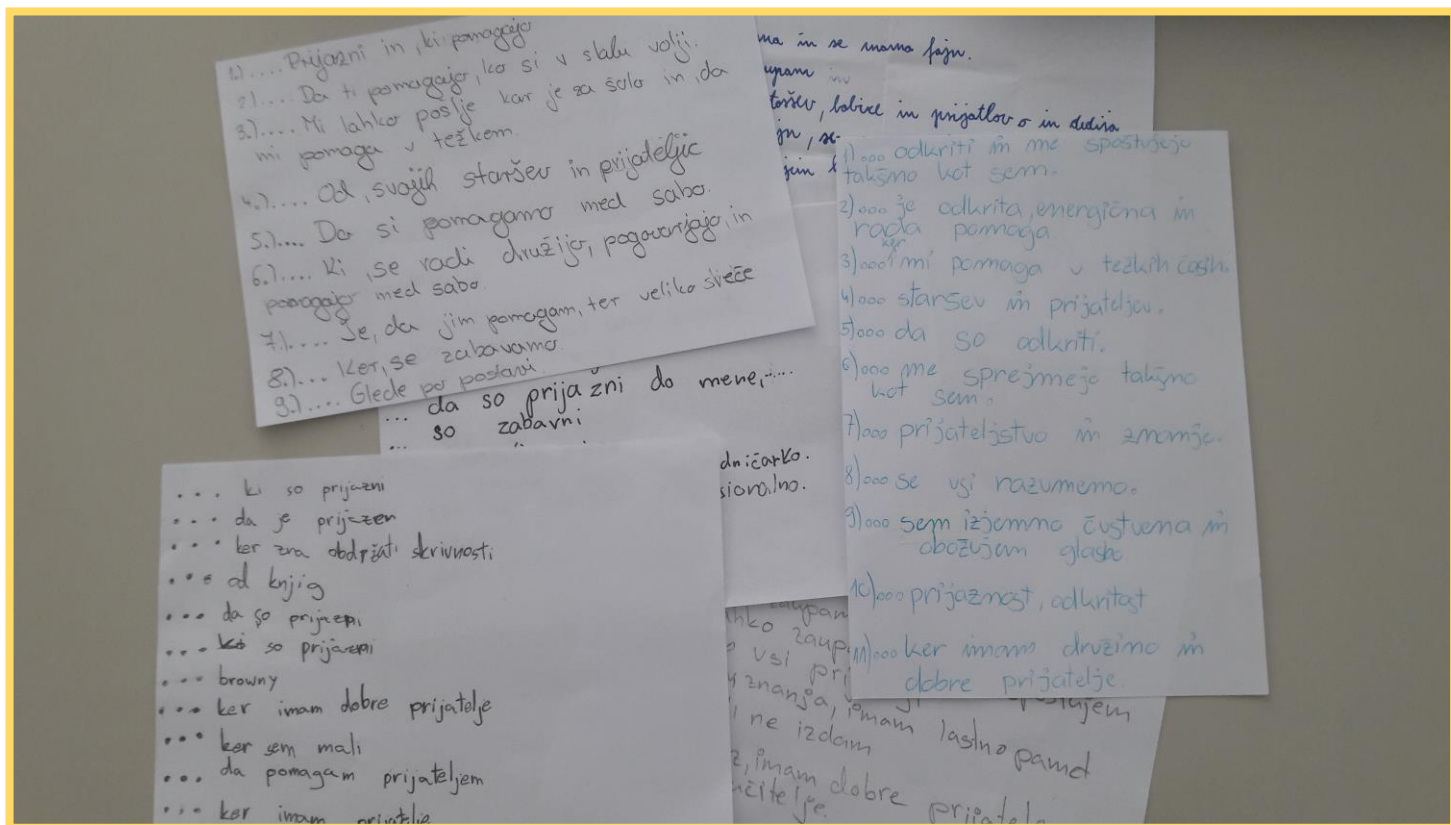 1.).... Prijazni in, ki pomagajo
2).... Da ti pomagajo, ko si v slabu volji.
3.).... Mi lahko pošlje kar je za šolo in, da
mi pomaga v težkem.
4.).... Od, svojih staršev in prijateljic
5.).... Da si pomagamo med sabo.
6.).... Ki, se radi družijo, pogovarjajo, in
pomagajo med sabo.
7.).... Je, da jim pomagam, ter veliko sreče
8.)... Ker, se zabavamo.
9.).... Glede po postavi.
ma in se mama fajn.
upam in
toršev, babice in prijatlov o in dedija
... da so prijazni do mene,....
... so zabavni
dničarko.
sionalno.
1)... odkriti in me spoštujejo
takšno kot sem.
2)... je odkrita, energična in
rada pomaga.
3)... ker mi pomaga v težkih časih.
4)... staršev in prijateljev.
5)... da so odkriti.
6)... me sprejmejo takšno
kot sem.
7)... prijateljstvo in znanje.
8)... se vsi razumemo.
9)... sem izjemno čustvena in
obožujem glasbo
10)... prijaznost, odkritost
11)... ker imam družino in
dobre prijatelje.
... ki so prijazni
... da je prijazen
... ker zna obdržati skrivnosti
... od knjig
... da so prijazni
... ki so prijazni
... browny
... ker imam dobre prijatelje
... ker sem mali
... da pomagam prijateljem
... ker imam prijatlje
zaupam
hko zaup
vsi pri
znanja, imam lastno pamet
ne izdam
z, imam dobre prijatel
čitelje.